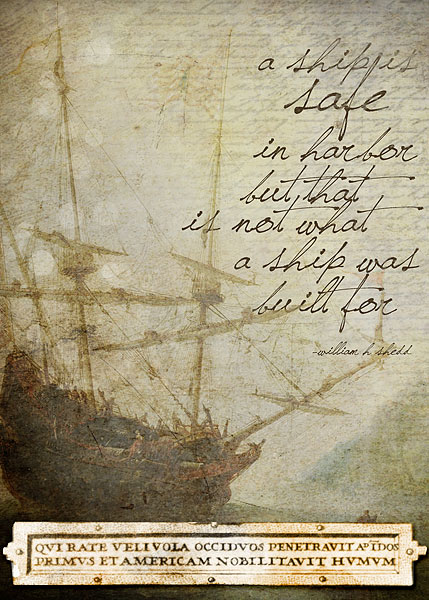 a ship is
safe
in harbor
but that
is not what
a ship was
built for
-william h shedd
QVI RATE VELIVOLA OCCIDVOS PENETRAVIT AD INDOS
PRIMUS ET AMERICAM NOBILITAVIT HVMVM